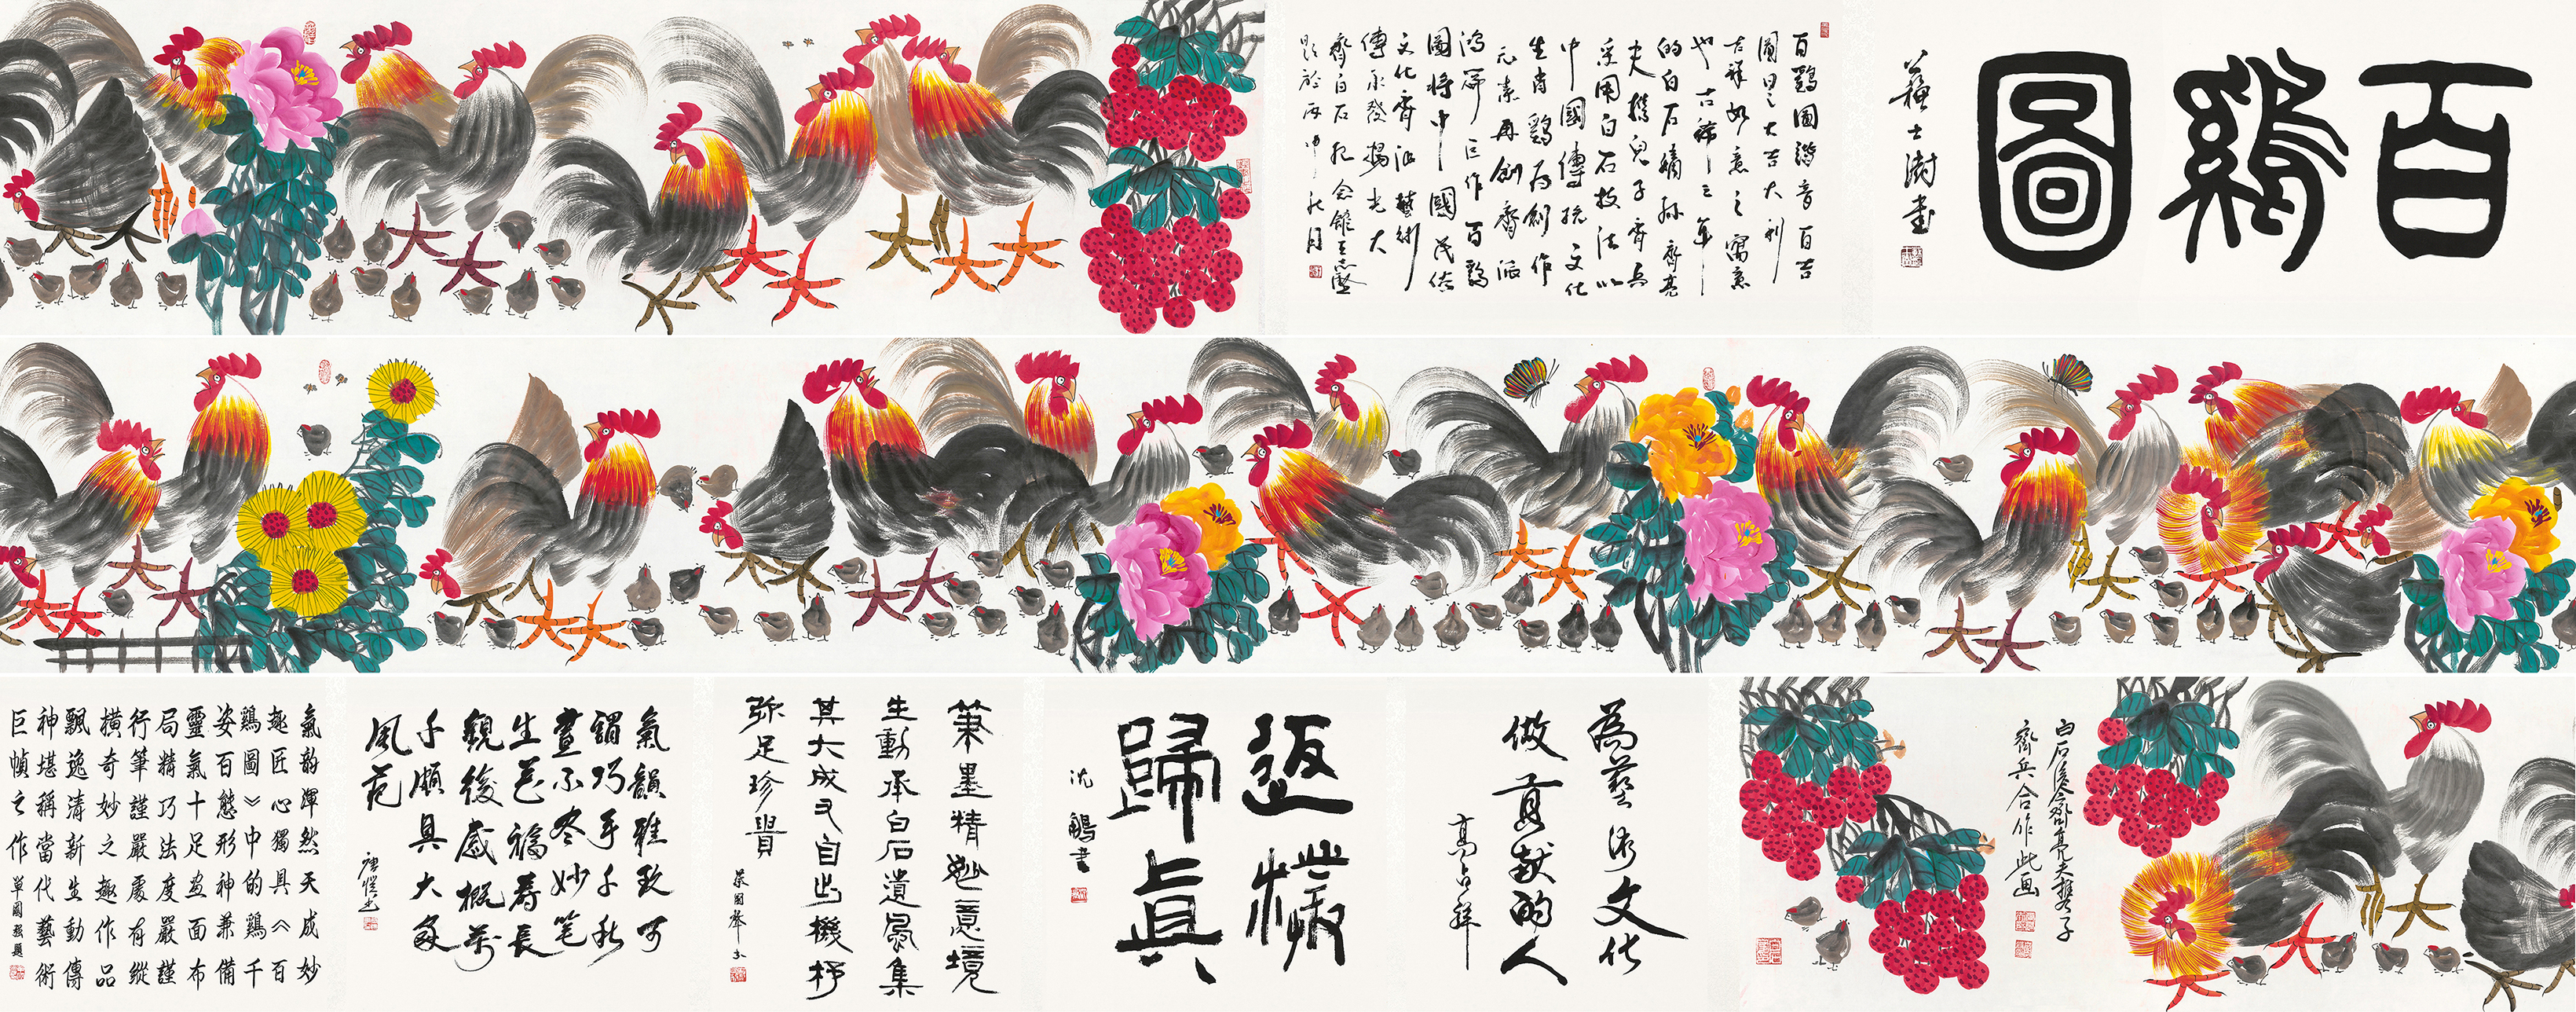 百鷄圖
蘇士澍書
百鷄圖諧音百吉
圖曰之大吉大利
吉祥如意之寓意
也古稀之年
的白石嫡孫齊亮
夫携兒子齊兵
采用白石技法以
中國傳統文化
生肖鷄为創作
元素再創齊派
鴻篇巨作百鷄
圖將中國民俗
文化齊派藝術
傳承發揚光大
齊白石纪念館王志堅
題於丙申秋月
白石後人齊亮夫携子
齊兵合作此画
為藝術文化
做貢献的人
高占祥
返樸
歸真
沈鵬書
筆墨精妙意境
生動承白石遺風集
其大成又自出機杼
弥足珍貴
氣韻雅致可
謂巧手千秋
畫不尽妙笔
生花福寿長
觀後感概万
千頗具大家
風范
氣韵渾然天成妙
趣匠心獨具《百
鷄圖》中的鷄千
姿百態形神兼備
靈氣十足画面布
局精巧法度嚴謹
行筆謹嚴處有縱
橫奇妙之趣作品
飄逸清新生動傳
神堪稱當代藝術
巨幀之作
單國强題